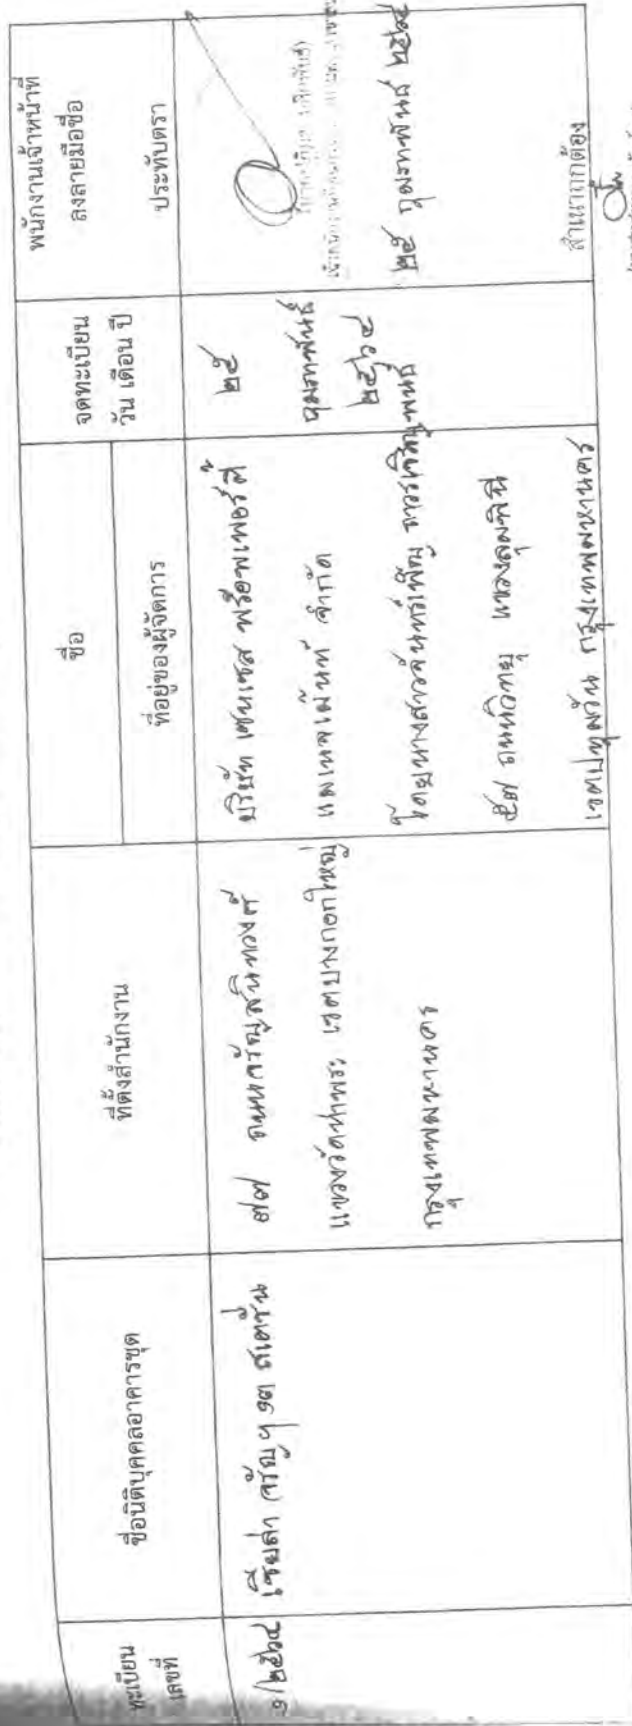 ทะเบียน
เลขที่
ชื่อนิติบุคคลอาคารชุด
ที่ตั้งสำนักงาน
ชื่อ
ที่อยู่ของผู้จัดการ
จดทะเบียน
วัน เดือน ปี
พนักงานเจ้าหน้าที่
ลงลายมือชื่อ
ประทับตรา
๑/๒๕๖๔
เซียล่า จรัญฯ ๑๓ สเตชั่น
๗๗ ถนนจรัญสนิทวงศ์
แขวงวัดท่าพระ เขตบางกอกใหญ่
กรุงเทพมหานคร
บริษัท เซนเซส พร็อพเพอร์ตี้
แมเนจเม้นท์ จำกัด
โดยนางสาวจันทร์เพ็ญ
ถนนวิทยุ แขวงลุมพินี
เขตปทุมวัน กรุงเทพมหานคร
๒๕
กุมภาพันธ์
๒๕๖๔
๒๕ กุมภาพันธ์ ๒๕๖๔
สำเนาถูกต้อง